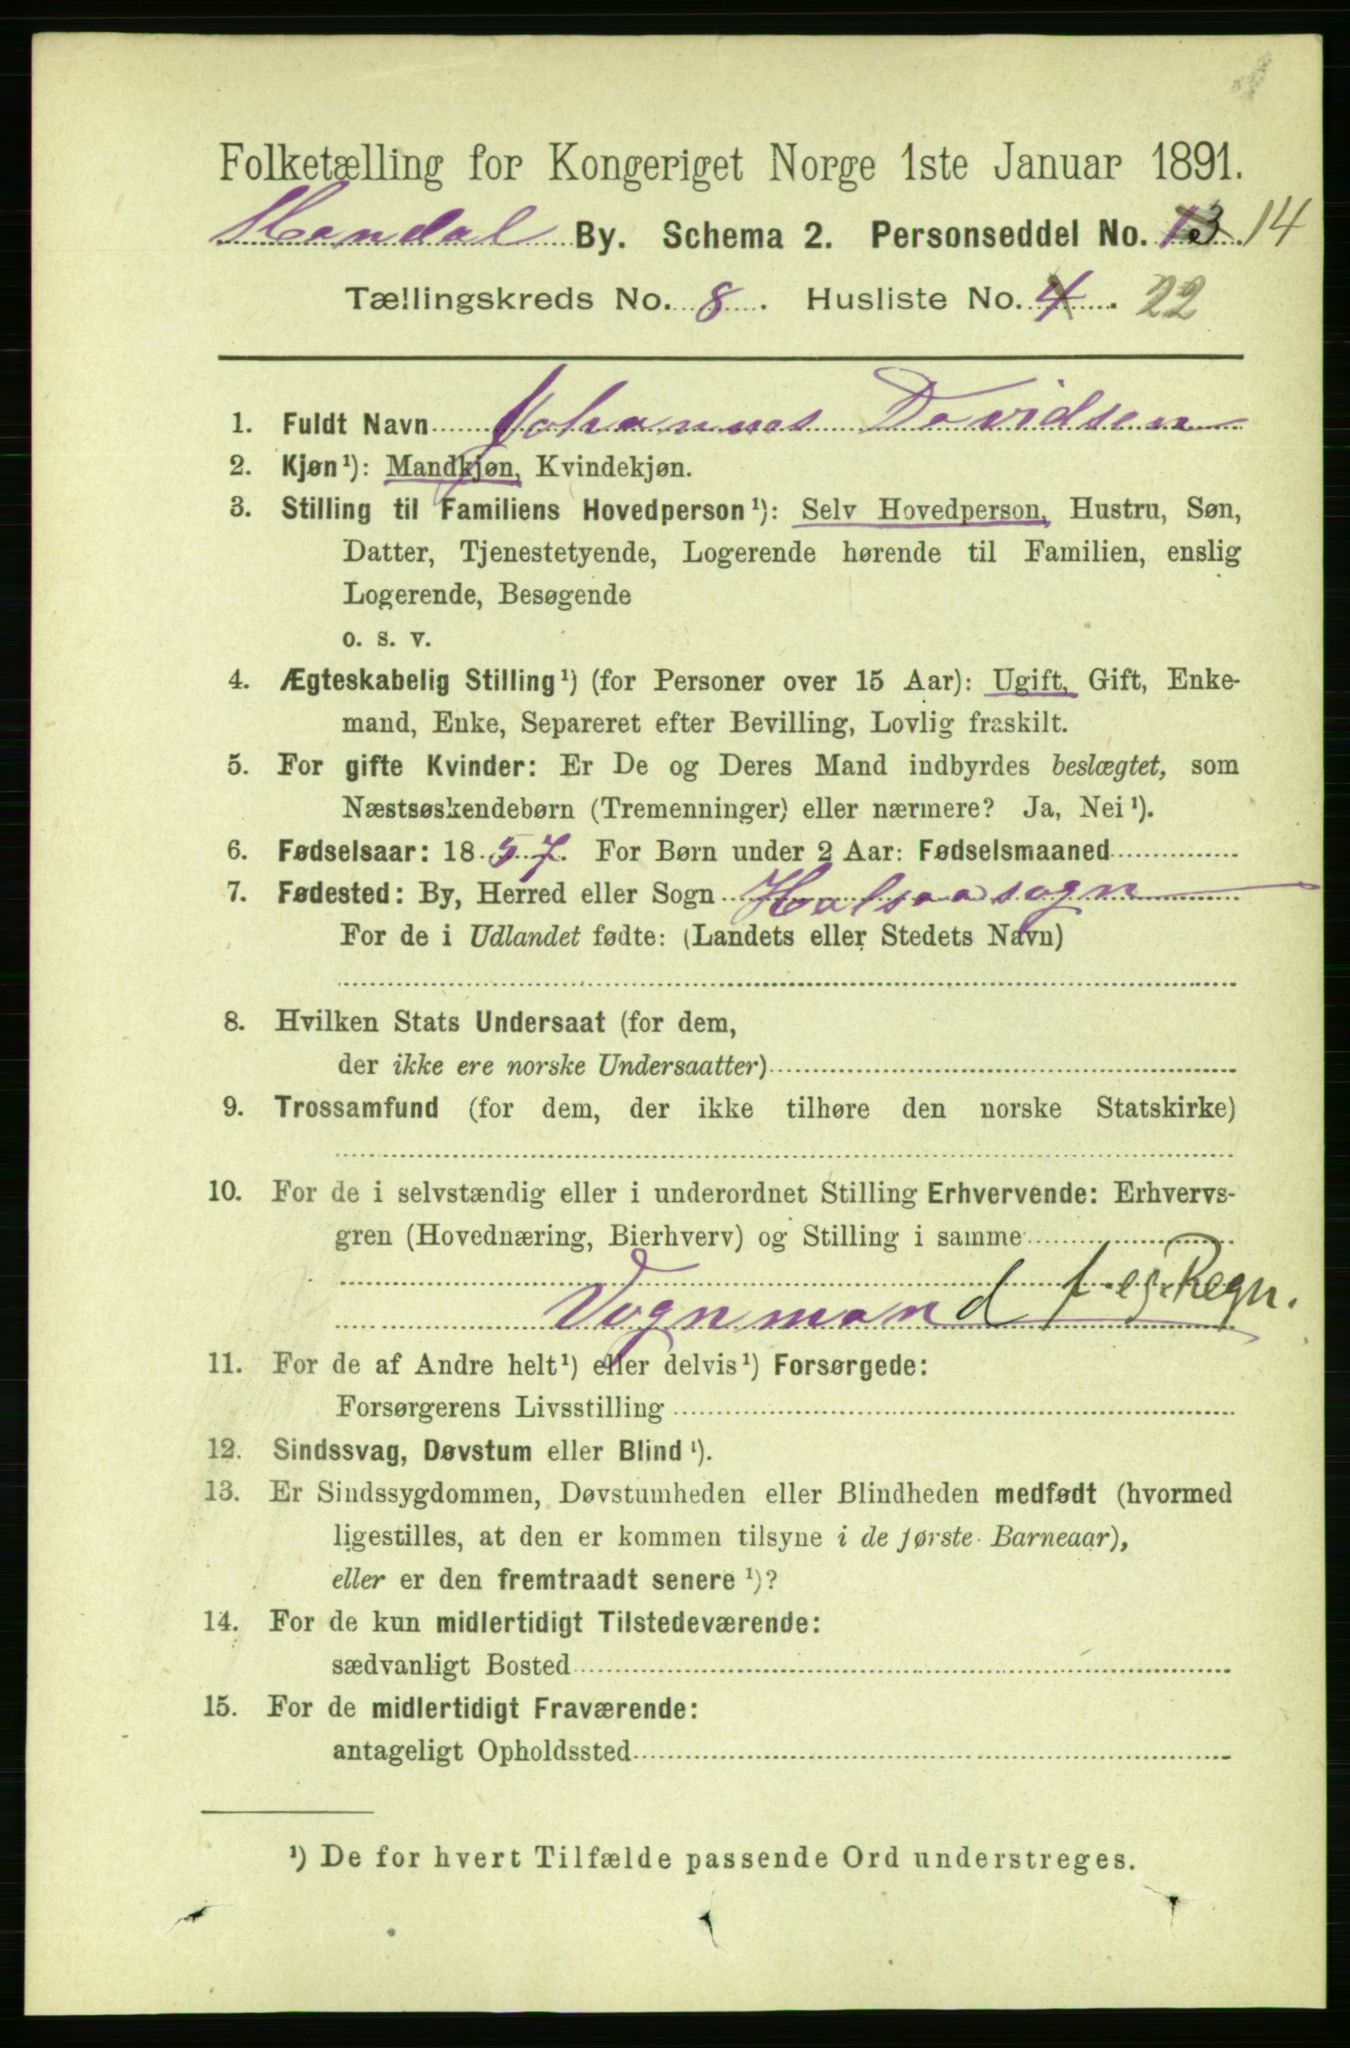 Folketælling for Kongeriget Norge 1ste Januar 1891.
Mandal By. Schema 2. Personseddel No. 13 14
Tællingskreds No. 8. Husliste No. 4. 22
1. Fuldt Navn Johannes Davidsen
2. Kjøn¹): Mandkjøn, Kvindekjøn.
3. Stilling til Familiens Hovedperson¹): Selv Hovedperson, Hustru, Søn,
Datter, Tjenestetyende, Logerende hørende til Familien, enslig
Logerende, Besøgende
o. s. v.
4. Ægteskabelig Stilling¹) (for Personer over 15 Aar): Ugift, Gift, Enke-
mand, Enke, Separeret efter Bevilling, Lovlig fraskilt.
5. For gifte Kvinder: Er De og Deres Mand indbyrdes beslægtet, som
Næstsøskendebørn (Tremenninger) eller nærmere? Ja, Nei¹).
6. Fødselsaar: 1857. For Børn under 2 Aar: Fødselsmaaned
7. Fødested: By, Herred eller Sogn Halsaa sogn
For de i Udlandet fødte: (Landets eller Stedets Navn)
8. Hvilken Stats Undersaat (for dem,
der ikke ere norske Undersaatter)
9. Trossamfund (for dem, der ikke tilhøre den norske Statskirke)
10. For de i selvstændig eller i underordnet Stilling Erhvervende: Erhvervs-
gren (Hovednæring, Bierhverv) og Stilling i samme
Vognmand f. eg. Regn.
11. For de af Andre helt¹) eller delvis¹) Forsørgede:
Forsørgerens Livsstilling
12. Sindssvag, Døvstum eller Blind¹).
13. Er Sindssygdommen, Døvstumheden eller Blindheden medfødt (hvormed
ligestilles, at den er kommen tilsyne i de første Barneaar),
eller er den fremtraadt senere¹)?
14. For de kun midlertidigt Tilstedeværende:
sædvanligt Bosted
15. For de midlertidigt Fraværende:
antageligt Opholdssted
¹) De for hvert Tilfælde passende Ord understreges.